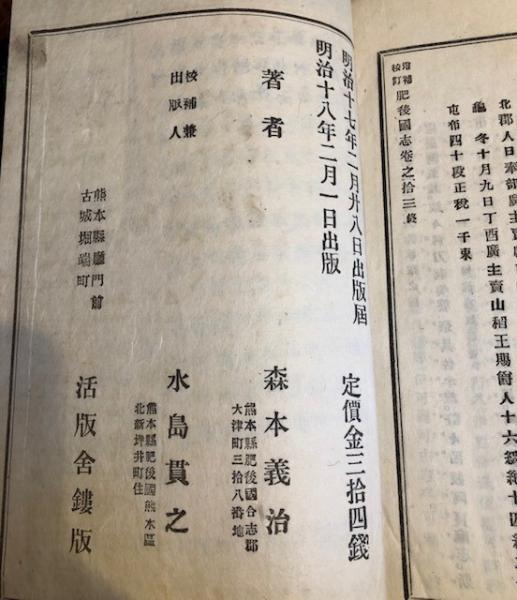 北郡人日奉部廣主賣
龜
冬十月九日丁酉廣主賣山稻主賜爵人十六級
屯布四十段正稅一千束
增補校訂肥後國志卷之拾三終
明治十七年二月廿八日出版届
定價金三拾四錢
明治十八年二月一日出版
著者
森本義治
熊本縣肥後國合志郡
大津町三拾八番地
校補兼
出版人
水島貫之
熊本縣肥後國熊本區
北新坪井町住
熊本縣廳門前
古城堀端町
活版舍鏤版